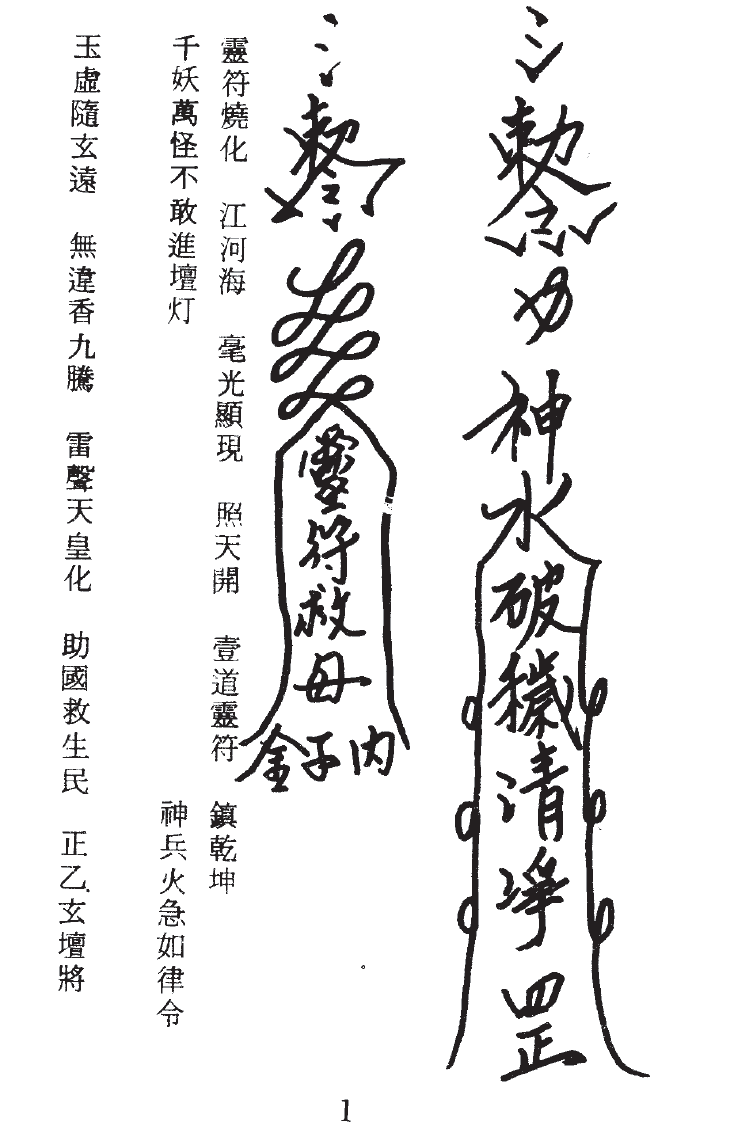 敕令
神水破穢清淨罡
敕令
靈符救母
金子內
靈符燒化 江河海 毫光顯現 照天開 壹道靈符 鎮乾坤
千妖萬怪不敢進壇灯 神兵火急如律令
玉虛隨玄遠 無違香九騰 雷聲天皇化 助國救生民 正乙玄壇將
1